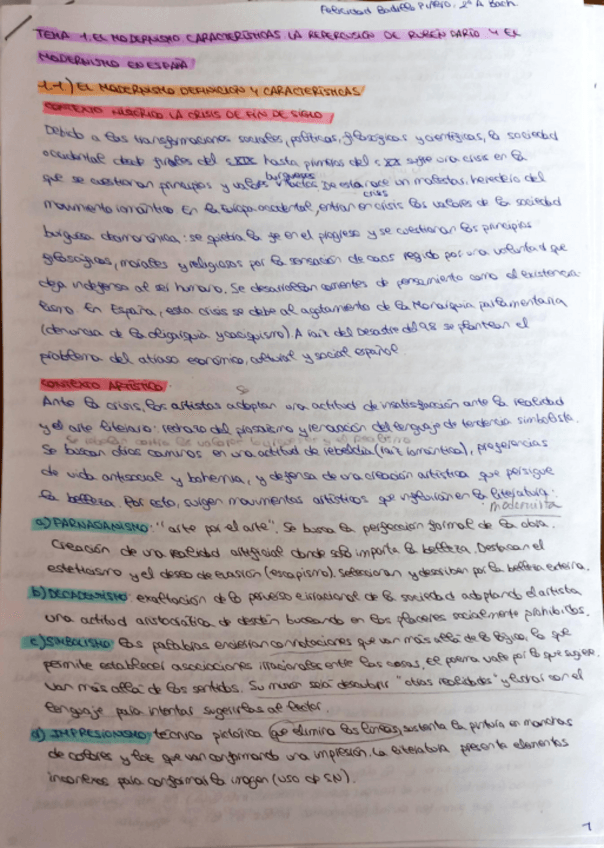 Felicidad Badillo Piñero. 2º A Bach.
TEMA 1. EL MODERNISMO CARACTERÍSTICAS LA REPERCUSIÓN DE RUBÉN DARÍO Y EL
MODERNISMO EN ESPAÑA
1.1) EL MODERNISMO DEFINICIÓN Y CARACTERÍSTICAS
CONTEXTO HISTÓRICO LA CRISIS DE FIN DE SIGLO
Debido a las transformaciones sociales, políticas, filosóficas y científicas, la sociedad
occidental desde finales del s.XIX hasta principios del s.XX sufre una crisis en la
que se cuestionan principios y valores burgueses. De esta crisis nace un malestar heredero del
movimiento romántico. En la Europa occidental, entran en crisis los valores de la sociedad
burguesa decimonónica: se quiebra la fe en el progreso y se cuestionan los principios
filosóficos, morales y religiosos por la sensación de caos regido por una voluntad que
deja indefensa al ser humano. Se desarrollan corrientes de pensamiento como el existencia-
lismo. En España, esta crisis se debe al agotamiento de la Monarquía parlamentaria
(denuncia de la oligarquía y caciquismo). A raíz del Desastre del 98 se plantean el
problema del atraso económico, cultural y social español.
CONTEXTO ARTÍSTICO.
Ante la crisis, los artistas adoptan una actitud de insatisfacción ante la realidad
y el arte literario: rechazo del prosaísmo y renovación del lenguaje de tendencia simbolista.
Se rebelan contra los valores burgueses y el realismo
Se buscan otros caminos en una actitud de rebeldía (raíz romántica), preferencias
de vida antisocial y bohemia, y defensa de una creación artística que persigue
la belleza. Por esto, surgen movimientos artísticos que influirán en la literatura:
modernista
a) PARNASIANISMO: "arte por el arte". Se busca la perfección formal de la obra.
Creación de una realidad artificial donde solo importa la belleza. Destacan el
esteticismo y el deseo de evasión (escapismo). Seleccionan y describen por la belleza externa.
b) DECADENTISMO: exaltación de lo perverso e irracional de la sociedad adoptando el artista
una actitud aristocrática de desdén buceando en los placeres socialmente prohibidos.
c) SIMBOLISMO: las palabras encierran connotaciones que van más allá de la lógica, lo que
permite establecer asociaciones irracionales entre las cosas, el poema vale por lo que sugiere.
Van más allá de los sentidos. Su misión será descubrir "otras realidades" y luchar con el
lenguaje para intentar sugerirlas al lector.
d) IMPRESIONISMO: técnica pictórica que elimina las líneas, sustenta la pintura en manchas
de colores y luz que van conformando una impresión. La literatura presenta elementos
inconexos para conformar la imagen (uso de SN).
1